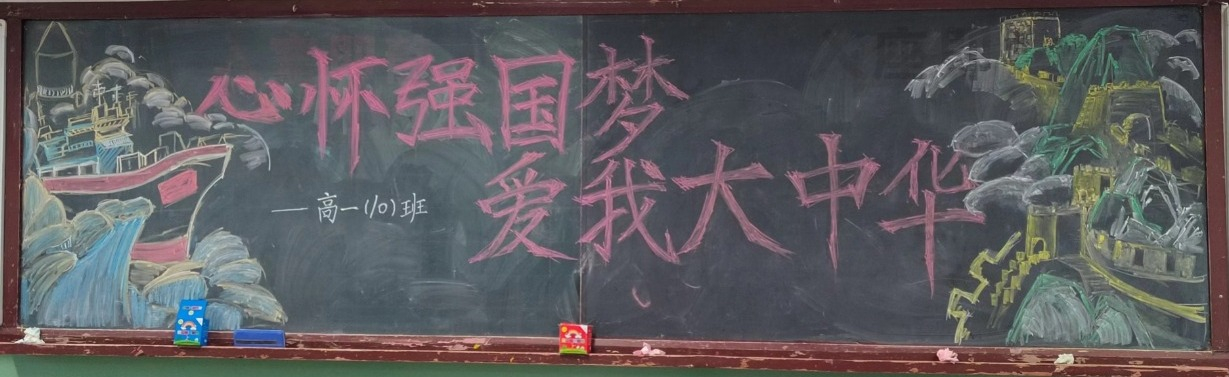 心怀强国梦
爱我大中华
—高一(10)班